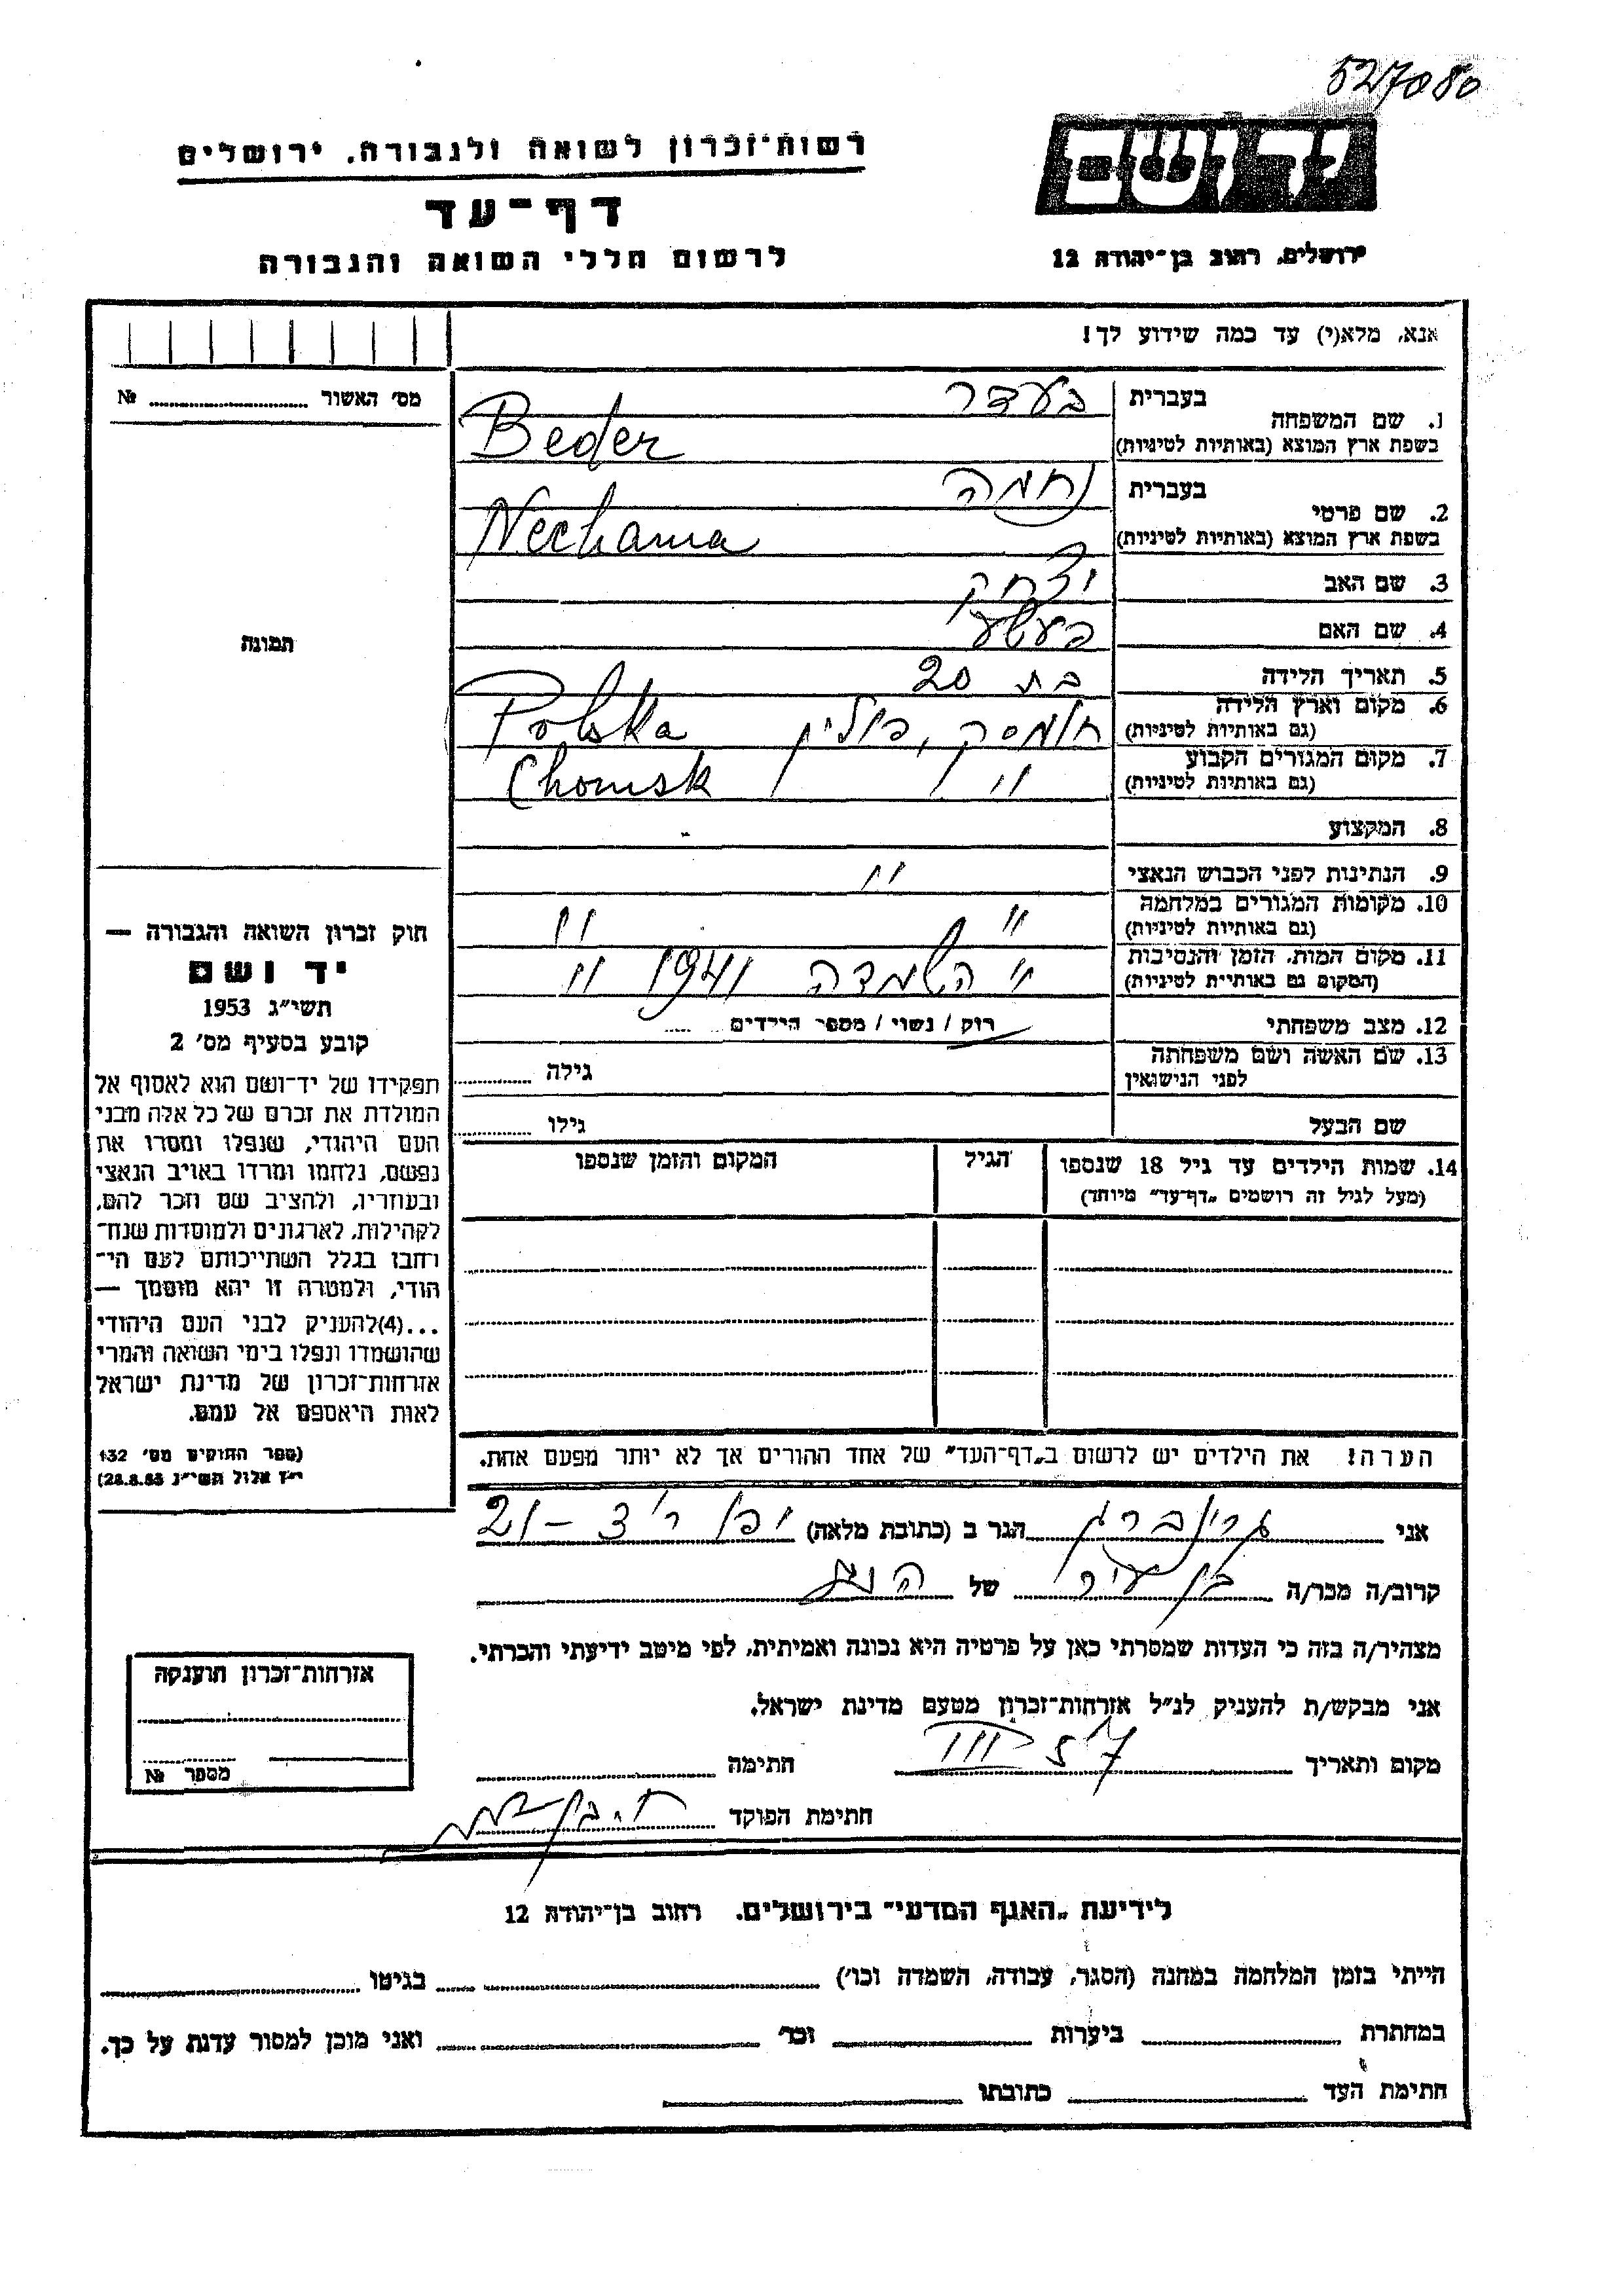 527080
רשות־זכרון לשואה ולגבורה, ירושלים
יד ושם
דף־עד
לרשום חללי השואה והגבורה
ירושלים, רחוב בן־יהודה 12
אנא, מלא(י) עד כמה שידוע לך!
מס׳ האשור № 
1. שם המשפחה בעברית בעדר
בשפת ארץ המוצא (באותיות לטיניות) Beder
2. שם פרטי בעברית נחמה
בשפת ארץ המוצא (באותיות לטיניות) Nechama
3. שם האב יצחק
4. שם האם
תמונה
5. תאריך הלידה בת 20
6. מקום וארץ הלידה (גם באותיות לטיניות) חומסק, פולין Polska
7. מקום המגורים הקבוע (גם באותיות לטיניות) " " Chomsk
8. המקצוע
9. הנתינות לפני הכבוש הנאצי "
10. מקומות המגורים במלחמה (גם באותיות לטיניות) " "
11. מקום המות, הזמן והנסיבות (המקום גם באותיות לטיניות) " השמדה 1941 "
12. מצב משפחתי רוק / נשוי / מספר הילדים
13. שם האשה ושם משפחתה לפני הנישואין גילה
שם הבעל גילו
14. שמות הילדים עד גיל 18 שנספו הגיל המקום והזמן שנספו
(מעל לגיל זה רושמים „דף־עד” מיוחד)
חוק זכרון השואה והגבורה —
יד ושם
תשי״ג 1953
קובע בסעיף מס׳ 2
תפקידו של יד־ושם הוא לאסוף אל
המולדת את זכרם של כל אלה מבני
העם היהודי, שנפלו ומסרו את
נפשם, נלחמו ומרדו באויב הנאצי
ובעוזריו, ולהציב שם וזכר להם,
לקהילות, לארגונים ולמוסדות שנח־
רחבו בגלל השתייכותם לעם הי־
הודי, ולמטרה זו יהא מוסמך —
...(4)להעניק לבני העם היהודי
שהושמדו ונפלו בימי השואה והמרי
אזרחות־זכרון של מדינת ישראל
לאות היאספם אל עמם.
(ספר החוקים מס׳ 132
י״ז אלול תשי״ג 28.8.53)
הערה! את הילדים יש לרשום ב„דף־העד” של אחד ההורים אך לא יותר מפעם אחת.
אני גרינברג הגר ב (כתובת מלאה) יפו
קרוב/ה מכר/ה בן עיר של הנ״ל
מצהיר/ה בזה כי העדות שמסרתי כאן על פרטיה היא נכונה ואמיתית, לפי מיטב ידיעתי והכרתי.
אני מבקש/ת להעניק לנ״ל אזרחות־זכרון מטעם מדינת ישראל.
מקום ותאריך III חתימה
חתימת הפוקד
אזרחות־זכרון הוענקה
מספר №
לידיעת „האגף המדעי” בירושלים, רחוב בן־יהודה 12
הייתי בזמן המלחמה במחנה (הסגר, עבודה, השמדה וכו׳) בגיטו
במחתרת ביערות וכו׳ ואני מוכן למסור עדות על כך.
חתימת העד כתובתו